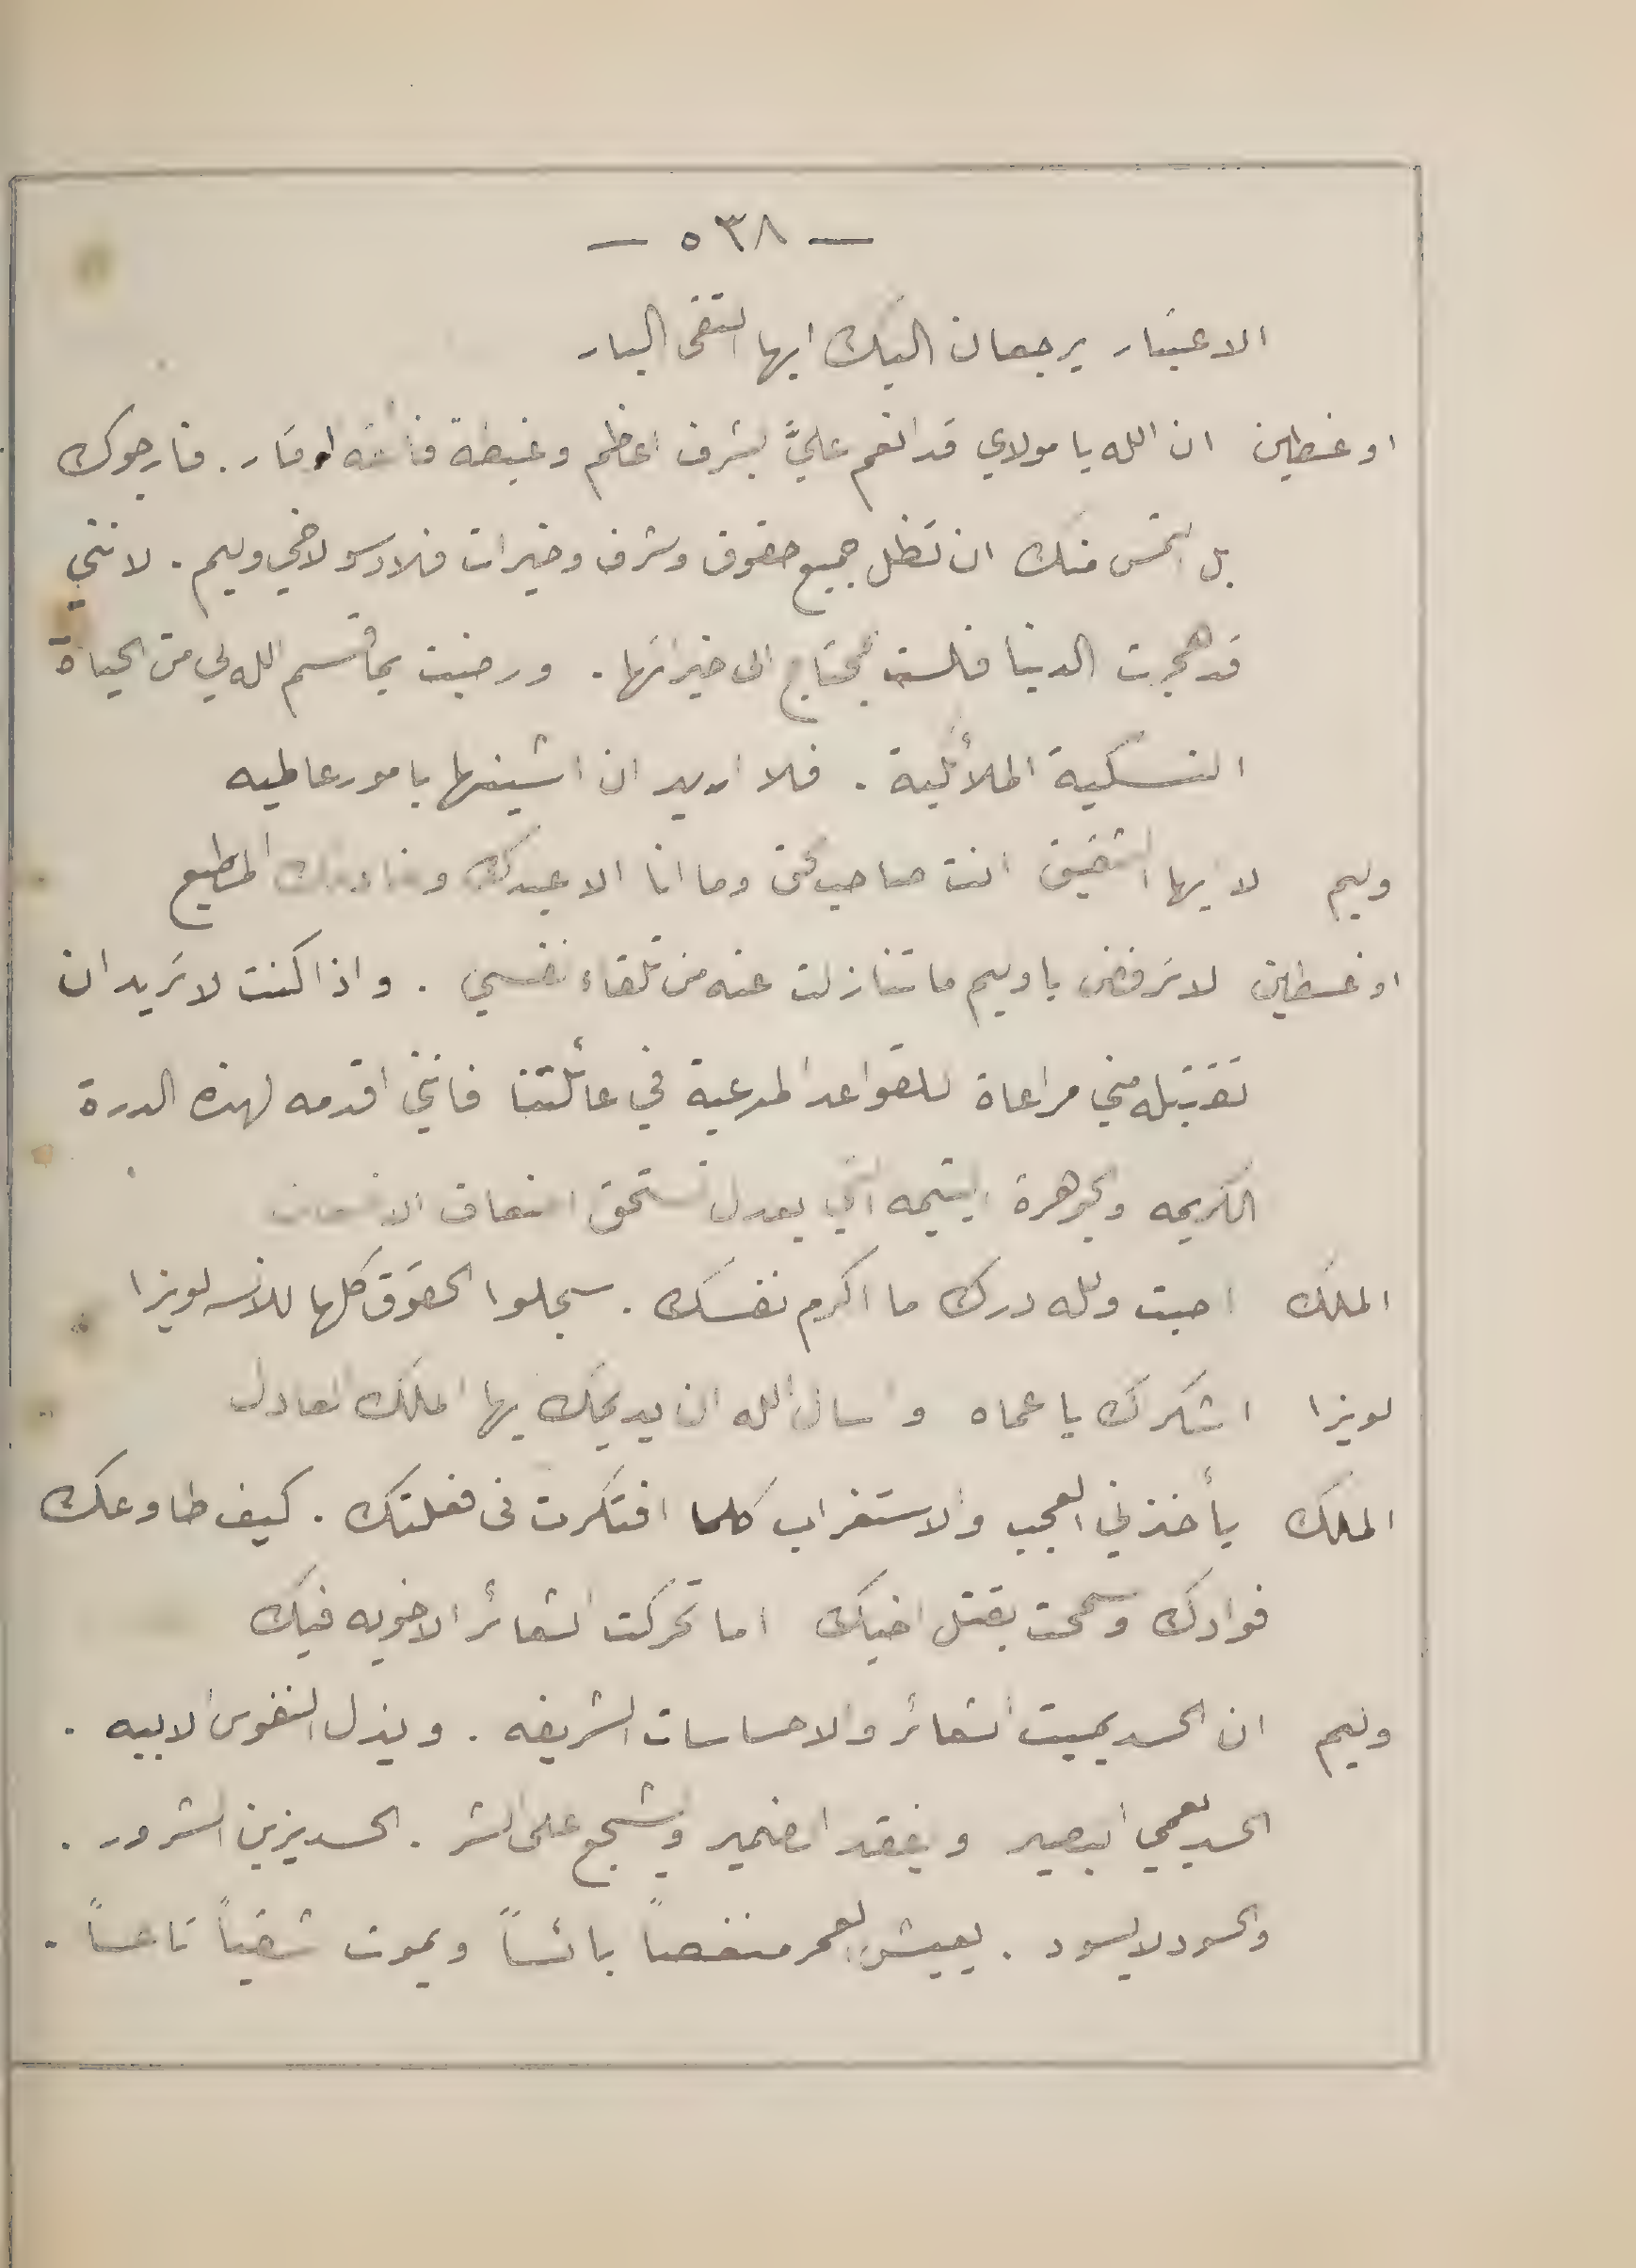 — ٥٣٨ —
الاعتبار يرجعان اليك ايها التقى البار
اوغسطين ان الله يا مولاي قد انعم عليَّ بشرف اعظم وغبطة . فارجوك
بل التمس منك ان تظل جميع حقوق وشرف وخيرات فلادسو لاخي وليم . لانني
قد هجرت الدنيا فلست بمحتاج الى خيراتها . ورضيت بما قسم الله لي من الحياة
النسكية الملائكية . فلا اريد ان اشينها بامور عاطيه
وليم لا ايها الشقيق انت صاحب الحق وما انا الا عبدك وخادمك المطيع
اوغسطين لا ترفض يا وليم ما تنازلت عنه من تلقاء نفسي . واذا كنت لا تريد ان
تقتبله مني مراعاة للقواعد المرعية في عائلتنا فانني اقدمه لهذه الدرة
الكريمه والجوهرة اليتيمه التي بعدل تستحق
الملك احبت ولله درك ما اكرم نفسك . سجلوا الحقوق كلها للانسه لويزا
لويزا اشكرك يا عماه واسال الله ان يديمك ايها الملك العادل
الملك يأخذني العجب والاستغراب كلما افتكرت فى فعلتك . كيف طاوعك
فوادك وسمحت بقتل اخيك اما تحركت الشعائر الاخويه فيك
وليم ان الحسد يميت الشعائر والاحساسات الشريفه . ويذل النفوس الابيه .
الحسد يعمي البصير ويفقد الضمير ويشجع على الشر . الحسد يزين الشرور .
والحسود لا يسود . يعيش العمر منغصاً بائساً ويموت شقياً تاعساً .